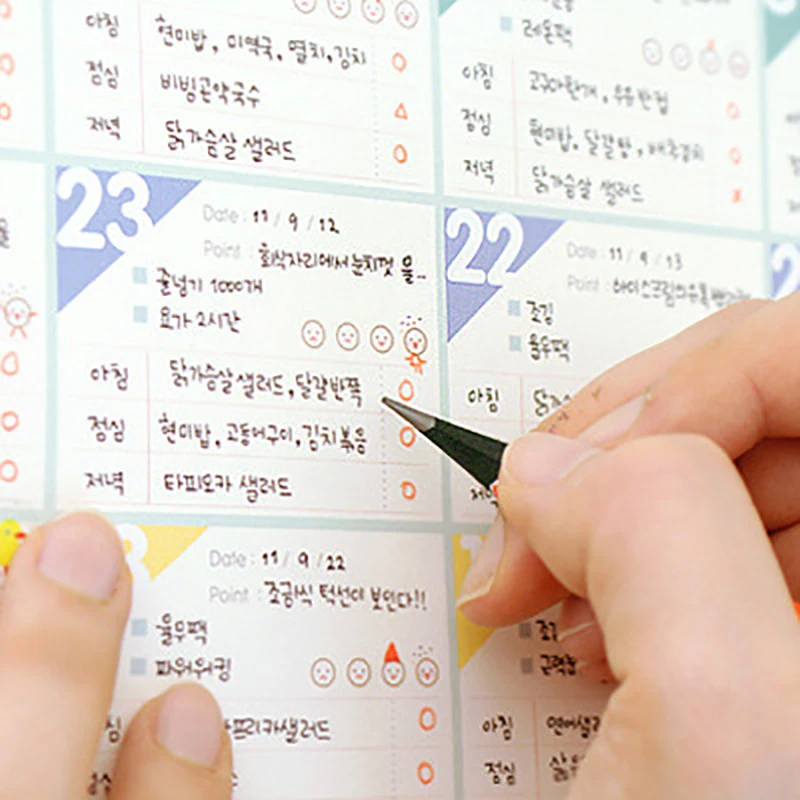 아침 현미밥, 미역국, 멸치, 김치
점심 비빔곤약국수
저녁 닭가슴살 샐러드
레몬팩
아침 고구마한개, 우유한컵
점심 현미밥, 달걀쌈, 배추김치
저녁 닭가슴살 샐러드
23
Date : 11 / 9 / 12
Point : 회식자리에서 눈치껏 물...
줄넘기 1000개
요가 2시간
아침 닭가슴살샐러드, 달걀반쪽
점심 현미밥, 고등어구이, 김치볶음
저녁 타피오카 샐러드
22
Date : 11 / 9 / 13
Point :
조깅
율무팩
아침
저녁
Date : 11 / 9 / 22
Point : 조금씩 턱선이 보인다!!
율무팩
파워워킹
프리카샐러드
아침
점심